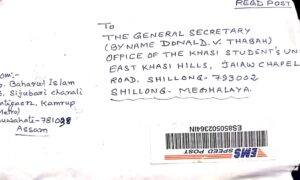 READ POST
To
THE GENERAL SECRETARY
(BY NAME DONALD. V. THABAH)
OFFICE OF THE KHASI STUDENT'S UN
EAST KHASI HILLS, JAIAW CHAPEL
ROAD. SHILLONG - 793002
SHILLONG - MEGHALAYA.
om:-
Baharul Islam
Sijubari charali
Kamrup
Metro)
uwahati - 781028
Assam
ES850502364IN
EMS
SPEED POST